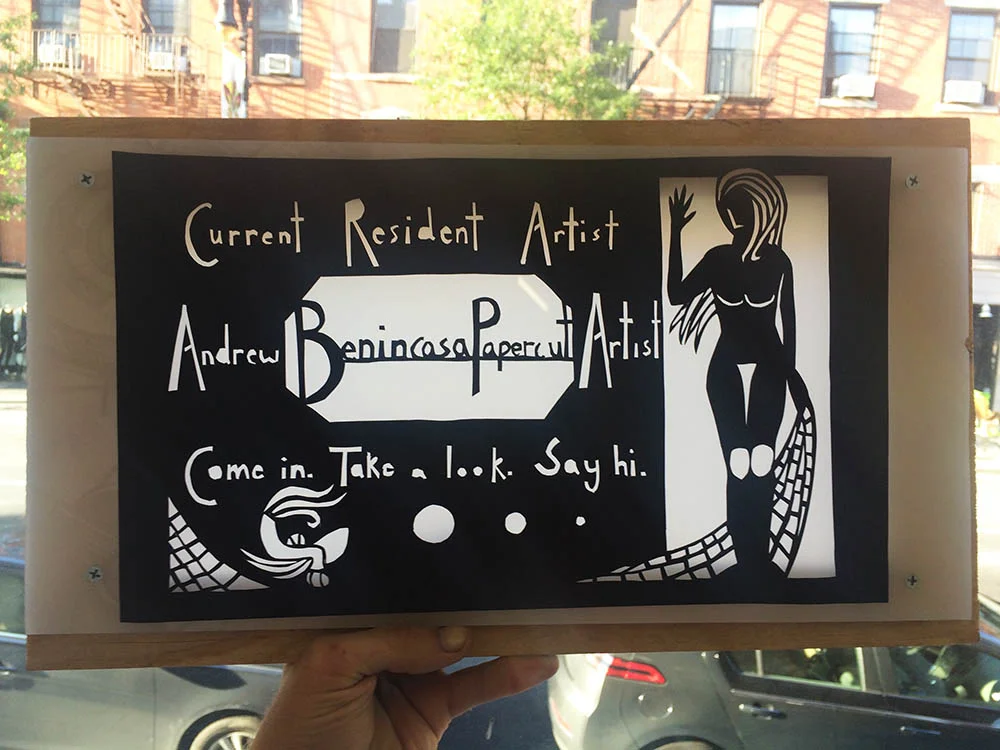 Current Resident Artist
Andrew Benincasa Papercut Artist
Come in. Take a look. Say hi.